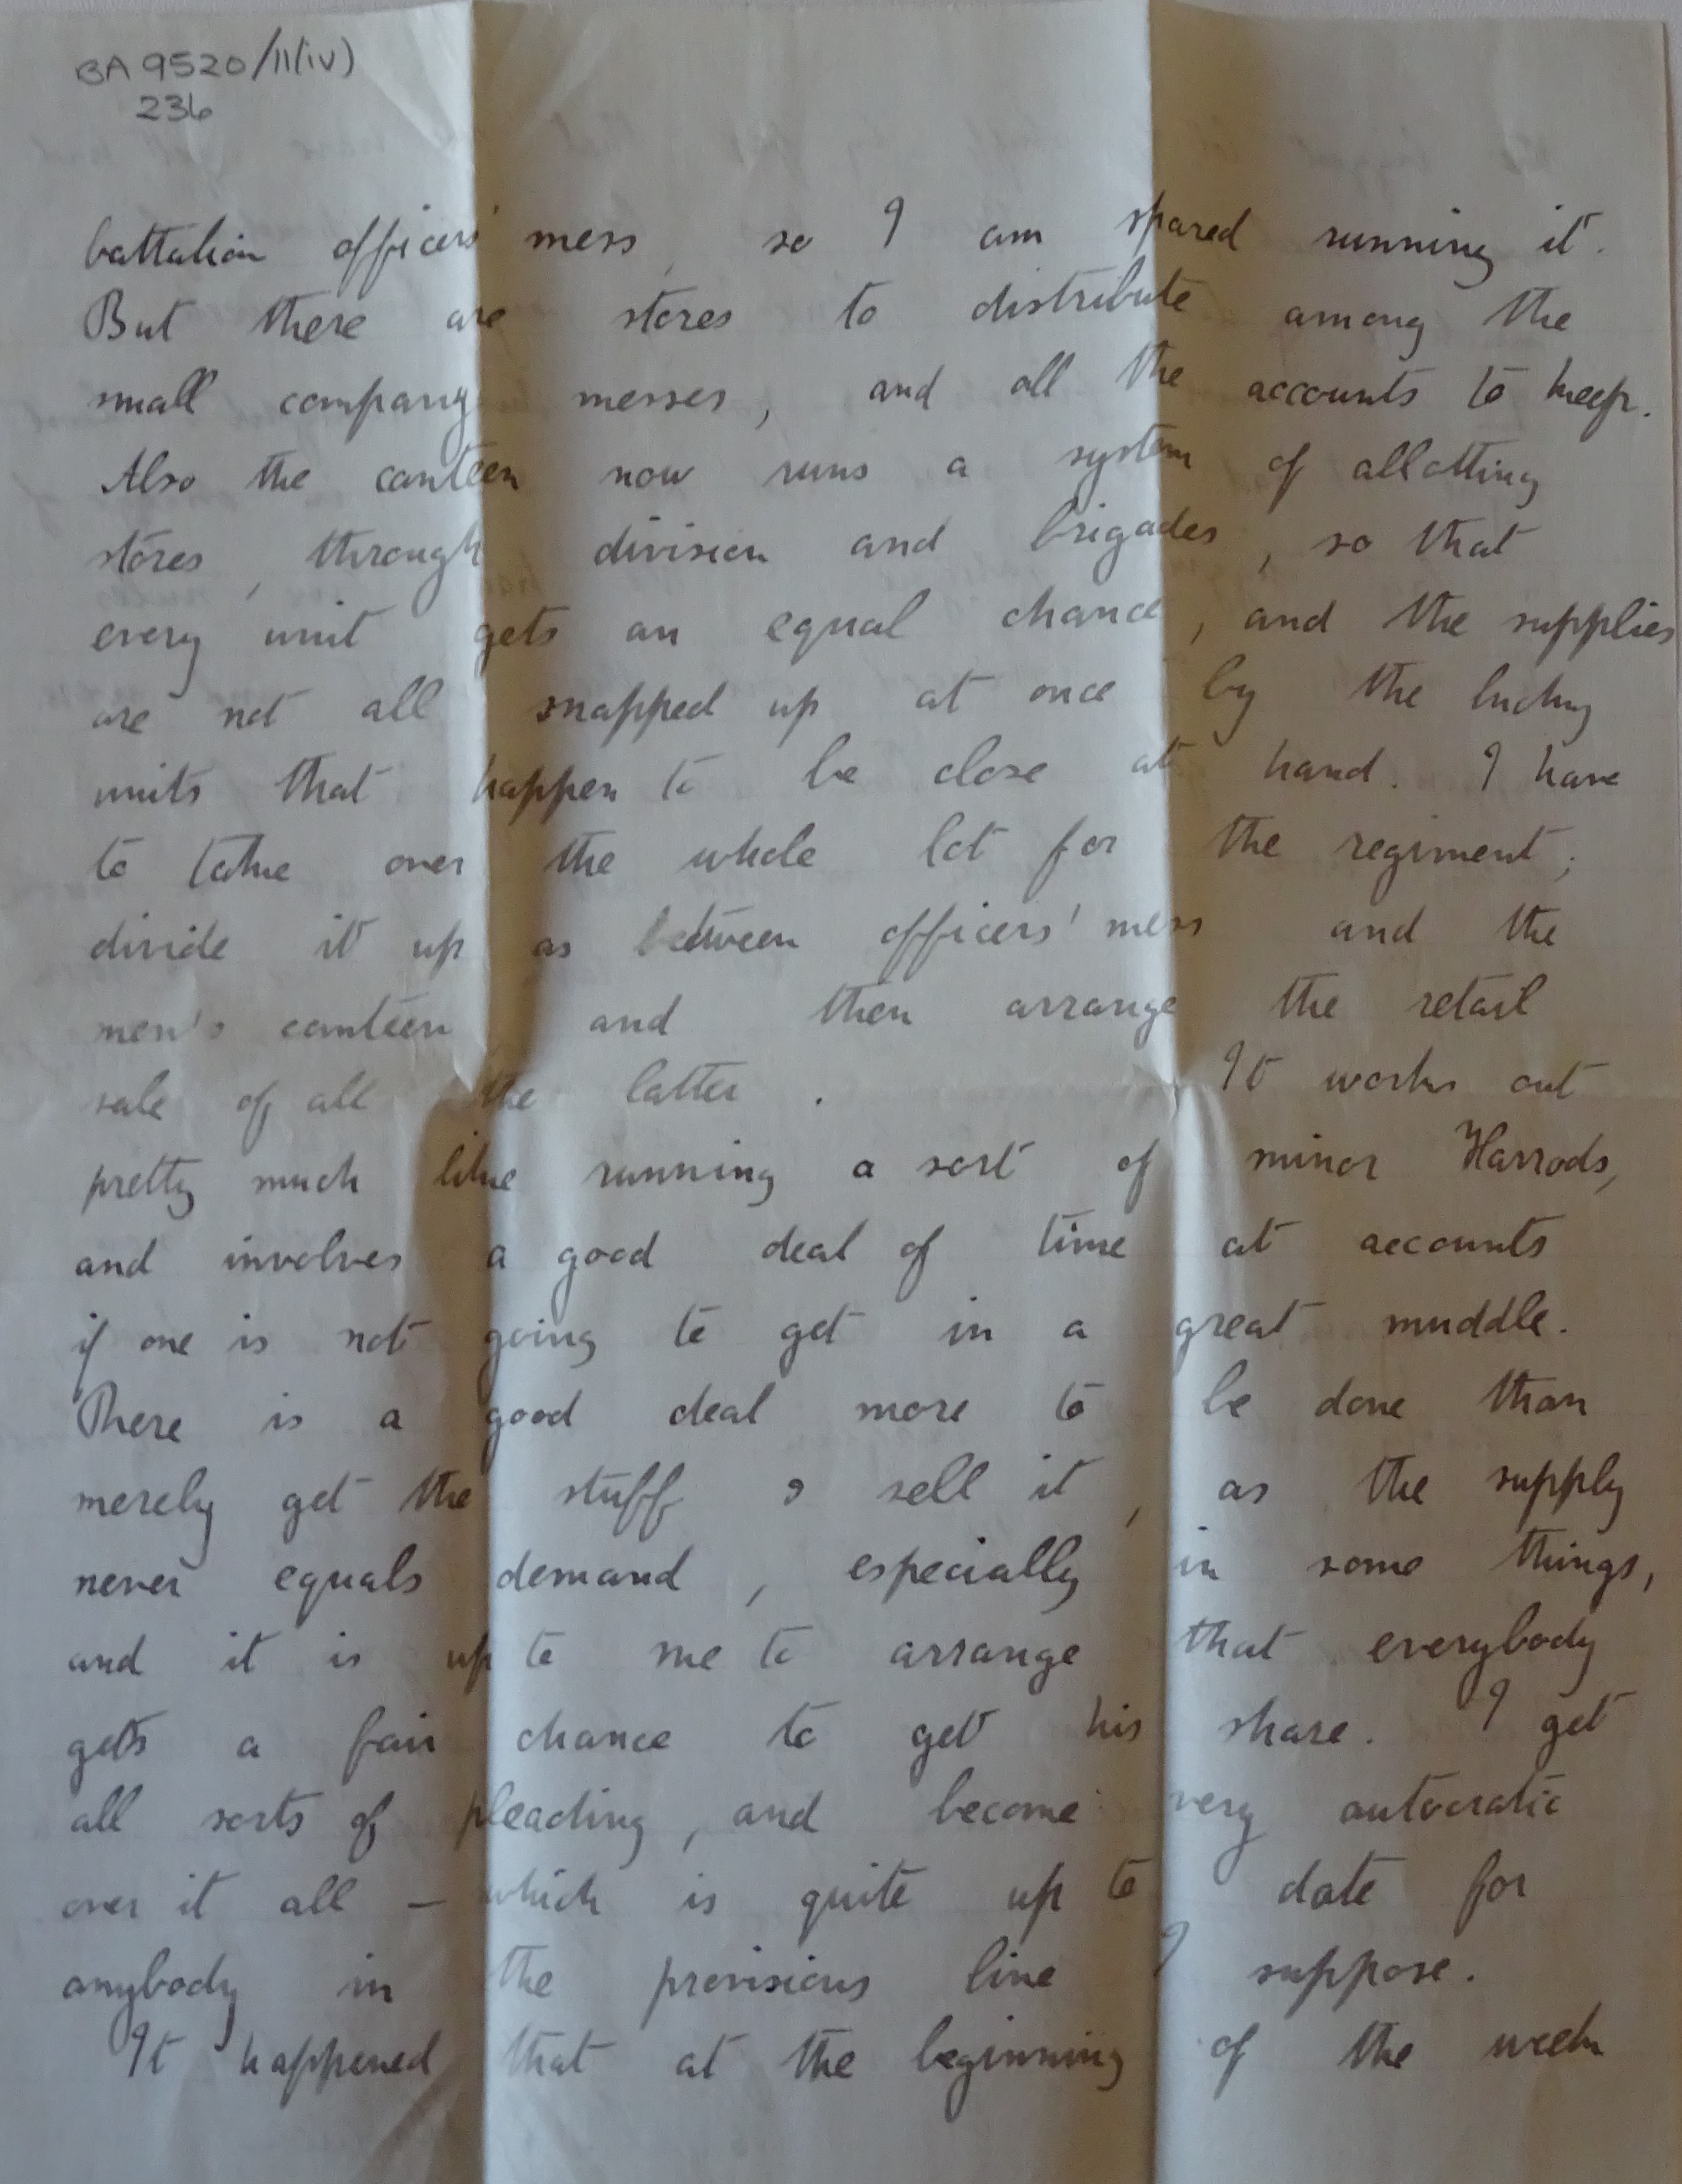 BA 9520/11(iv)
236
battalion officers' mess, so I am spared running it.
But there are stores to distribute among the
small company messes, and all the accounts to keep.
Also the canteen now runs a system of allotting
stores, through division and brigades, so that
every unit gets an equal chance, and the supplies
are not all snapped up at once by the lucky
units that happen to be close at hand. I have
to take over the whole lot for the regiment;
divide it up as between officers' mess and the
men's canteen and then arrange the retail
sale of all the latter. It works out
pretty much like running a sort of minor Harrods,
and involves a good deal of time at accounts
if one is not going to get in a great muddle.
There is a good deal more to be done than
merely get the stuff & sell it, as the supply
never equals demand, especially in some things,
and it is up to me to arrange that everybody
gets a fair chance to get his share. I get
all sorts of pleading, and become very autocratic
over it all — which is quite up to date for
anybody in the provisions line I suppose.
It happened that at the beginning of the week